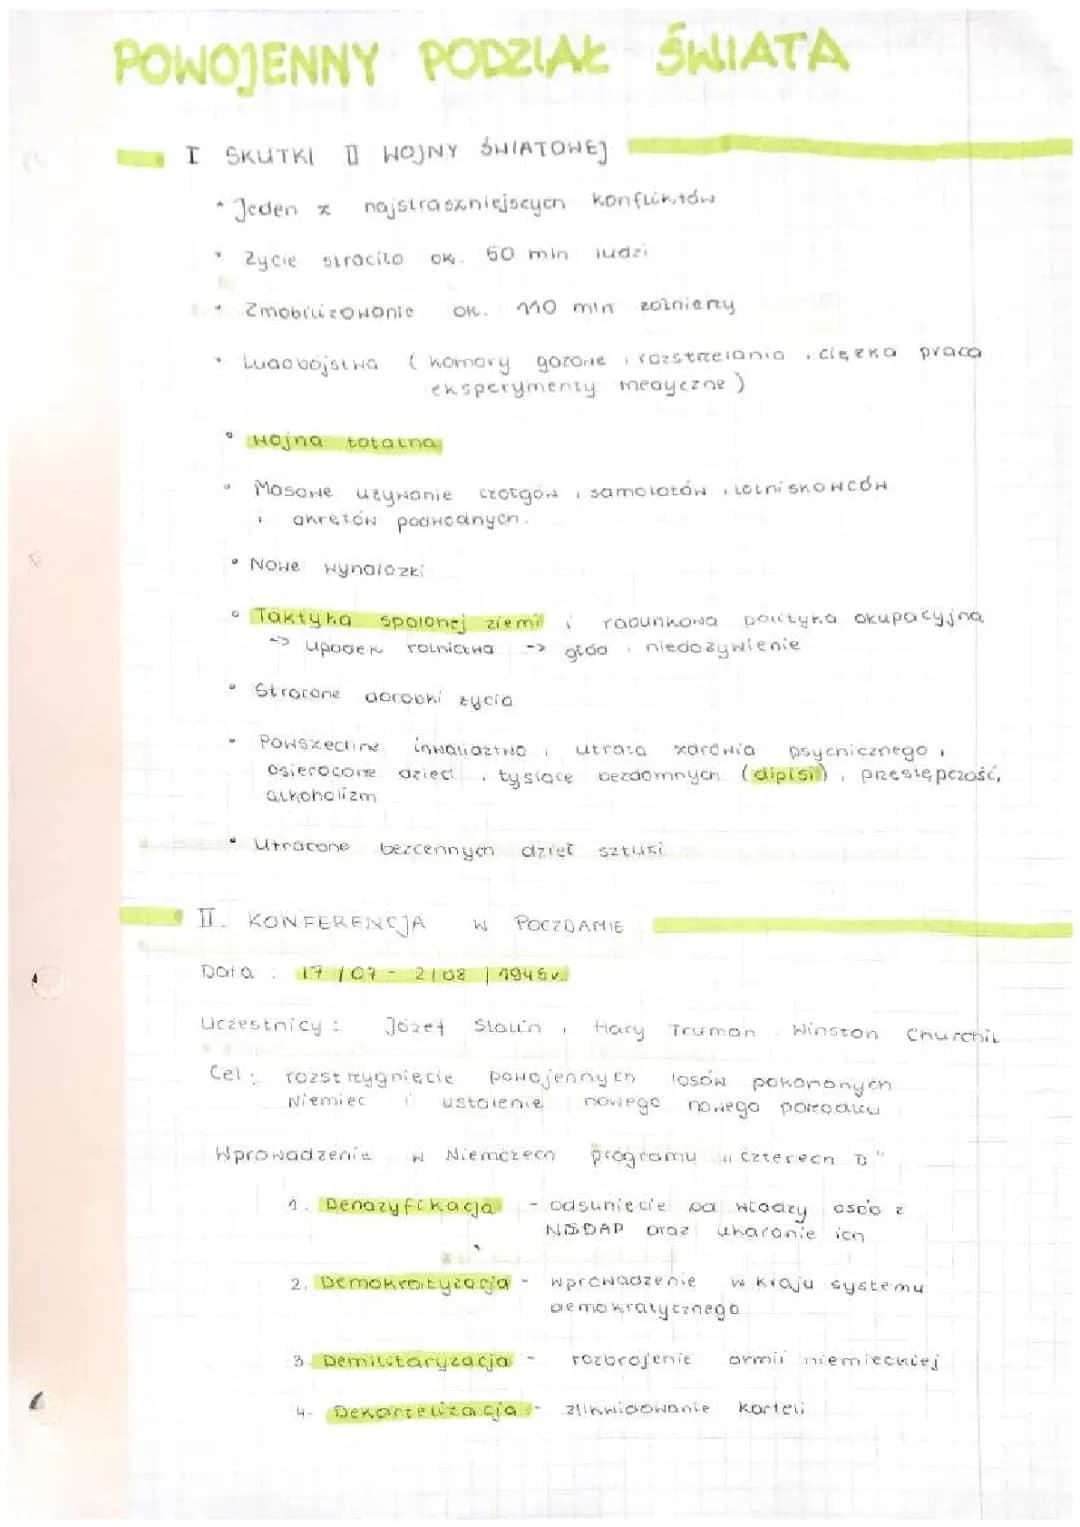 POWOJENNY PODZIAŁ ŚWIATA
I SKUTKI II WOJNY ŚWIATOWEJ
Jeden z najstraszniejszych konfliktów
Życie straciło ok. 50 mln ludzi
Zmobilizowanie ok. 110 mln żołnierzy
Ludobójstwa (komory gazowe, rozstrzelania, ciężka praca
eksperymenty medyczne)
Wojna totalna
Masowe używanie czołgów, samolotów, lotniskowców
i okrętów podwodnych.
Nowe wynalazki
Taktyka spalonej ziemi i rabunkowa polityka okupacyjna
-> upadek rolnictwa -> głód i niedożywienie
Stracone dorobki życia
Powszechne inwalidztwo, utrata zdrowia psychicznego,
osierocone dzieci, tysiące bezdomnych (dipisi), przestępczość,
alkoholizm
Utracone bezcennych dzieł sztuki
II. KONFERENCJA W POCZDAMIE
Data: 17/07 - 2/08 | 1945r.
Uczestnicy: Józef Stalin, Hary Truman Winston Churchil
Cel: rozstrzygnięcie powojennych losów pokonanych
Niemiec i ustalenie nowego nowego porządku
Wprowadzenie w Niemczech programu "czterech D"
1. Denazyfikacja - odsunięcie od władzy osób z
NSDAP oraz ukaranie ich
2. Demokratyzacja - wprowadzenie w kraju systemu
demokratycznego
3. Demilitaryzacja - rozbrojenie armii niemieckiej
4. Dekartelizacja - zlikwidowanie karteli